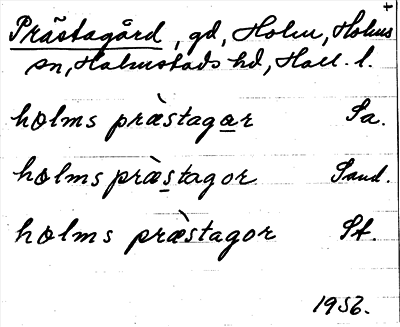 Prästagård, gd, Holm, Holms
sn, Halmstads hd, Hall. l.
holms præ̀stagar Sa.
holms præ̀stagor Sand.
holms præ̀stagor St.
1956.